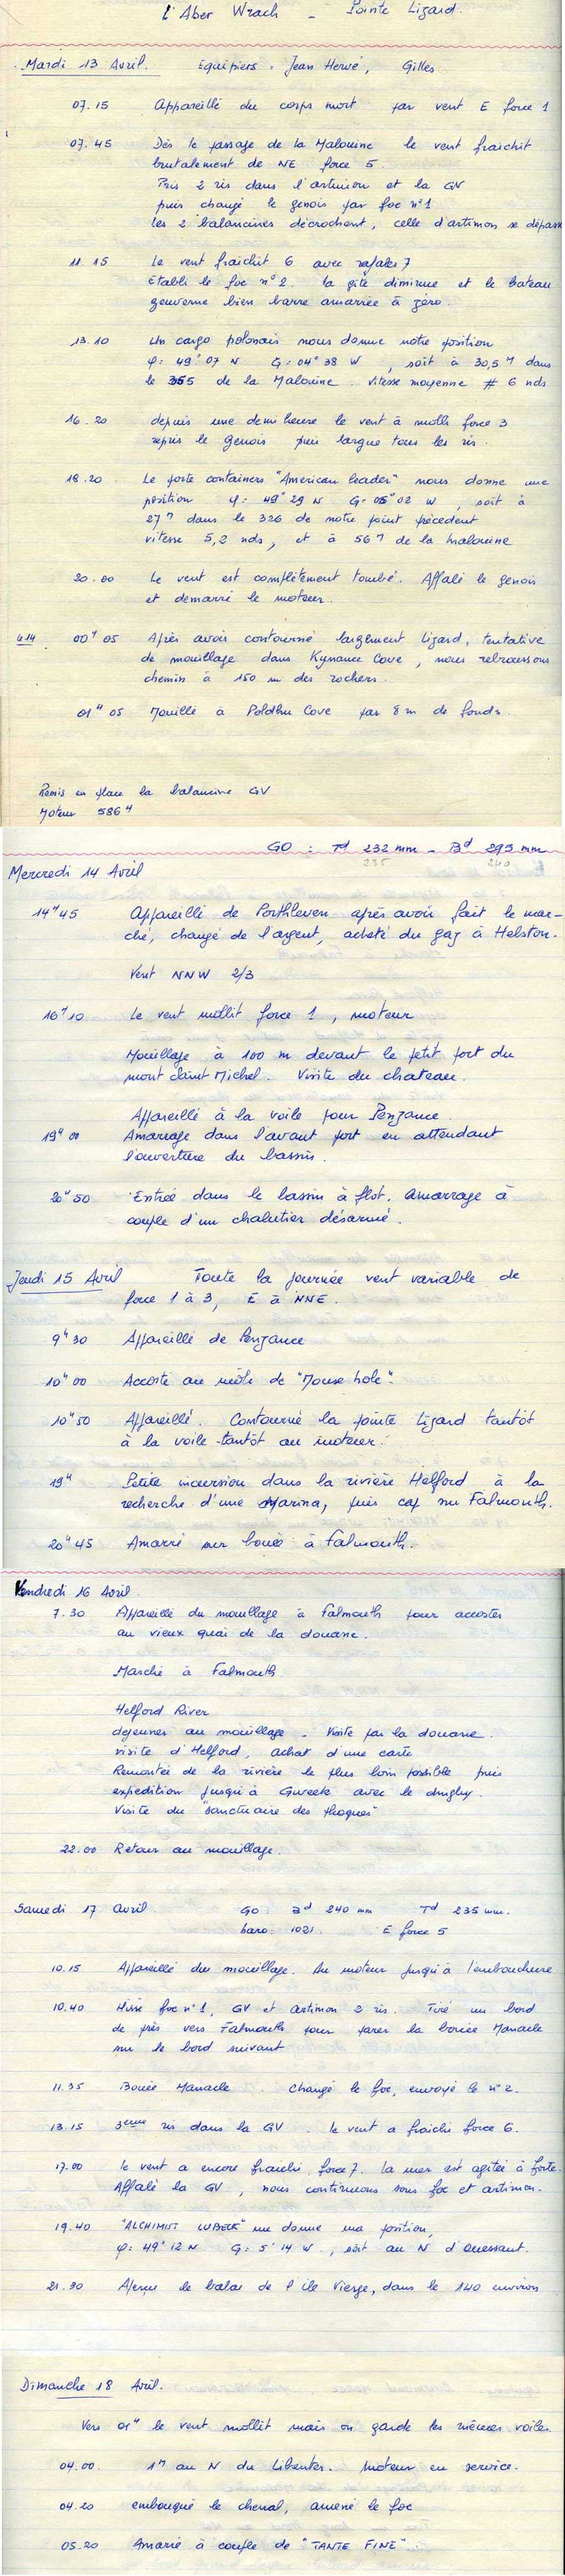 l'Aber Wrach - Pointe Lizard.
Mardi 13 Avril. Equipiers : Jean Hervé, Gilles
07.15 Appareillé du corps mort par vent E force 1
07.45 Dès le passage de la Malouine le vent fraichit
brutalement de NE force 5.
Pris 2 ris dans l'artimon et la GV
puis changé le genois par foc n°1
les 2 balancines décrochent, celle d'artimon se dépasse
11.15 Le vent fraichit 6 avec rafales 7
Etabli le foc n°2. la gîte diminue et le bateau
gouverne bien barre amarrée à zéro.
13.10 Un cargo polonais nous donne notre position
φ: 49° 07 N G: 04° 38 W, soit à 30,5 M dans
le 355 de la Malouine. Vitesse moyenne # 6 nds
16.20 depuis une demi heure le vent à molli force 3
repris le genois puis largué tous les ris.
18.20 Le porte containers "American leader" nous donne une
position φ: 49° 29 N G: 05° 02 W, soit à
27 M dans le 326 de notre point précedent
vitesse 5,2 nds, et à 56 M de la malouine
20.00 Le vent est complètement tombé. Affalé le genois
et démarré le moteur.
4/14 00H05 Après avoir contourné largement Lizard, tentative
de mouillage dans Kynance Cove, nous rebroussons
chemin à 150 m des rochers.
01H05 Mouillé à Poldhu Cove par 8 m de fonds.
Remis en place la balancine GV
Moteur 586H
GO : Td 232 mm - Bd 295 mm
235 240
Mercredi 14 Avril
14H45 Appareillé de Porthleven après avoir fait le mar-
ché, changé de l'argent, acheté du gaz à Helston.
Vent NNW 2/3
16H10 Le vent mollit force 1, moteur
Mouillage à 100 m devant le petit port du
mont Saint Michel. Visite du chateau.
Appareillé à la voile pour Penzance.
19H00 Amarrage dans l'avant port en attendant
l'ouverture du bassin.
20H50 Entrée dans le bassin à flot. Amarrage à
couple d'un chalutier désarmé.
Jeudi 15 Avril Toute la journée vent variable de
force 1 à 3, E à NNE.
9H30 Appareillé de Penzance
10H00 Accosté au môle de "Mouse hole".
10H50 Appareillé. Contourné la pointe Lizard tantôt
à la voile tantôt au moteur.
19H Petite incursion dans la rivière Helford à la
recherche d'une Marina, puis cap sur Falmouth.
20H45 Amarré sur bouée à Falmouth.
Vendredi 16 Avril.
7.30 Appareillé du mouillage à Falmouth pour accoster
au vieux quai de la douane.
Marché à Falmouth
Helford River
déjeuner au mouillage - Visite par la douane.
visite d'Helford, achat d'une carte
Remontée de la rivière le plus loin possible puis
expédition jusqu'à Gweek avec le dinghy.
Visite du "Sanctuaire des phoques"
22.00 Retour au mouillage.
Samedi 17 Avril. GO: Bd 240 mm Td 235 mm.
baro: 1021. E force 5
10.15 Appareillé du mouillage. Au moteur jusqu'à l'embouchure
10.40 Hissé foc n°1, GV et artimon 2 ris. Tiré un bord
de près vers Falmouth pour parer la bouée Manacle
sur le bord suivant
11.35 Bouée Manacle. Changé le foc, envoyé le n°2.
13.15 3ème ris dans la GV. Le vent a fraichi force 6.
17.00 le vent a encore fraichi, force 7. La mer est agitée à forte.
Affalé la GV, nous continuons sous foc et artimon.
19.40 "ALCHIMIST LUBECK" me donne ma position,
φ: 49° 12 N G: 5° 14 W, soit au N d'Ouessant.
21.30 Aperçu le balai de l'ile Vierge, dans le 140 environ
Dimanche 18 Avril.
Vers 01H le vent mollit mais on garde les mêmes voiles.
04.00. 1M au N du Libenter. Moteur en service.
04.20 embouqué le chenal, amené le foc
05.20 Amarré à couple de "TANTE FINE".